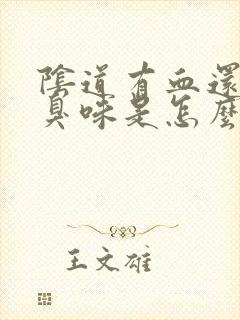 陰道有血還
臭味是怎麼
王文雄